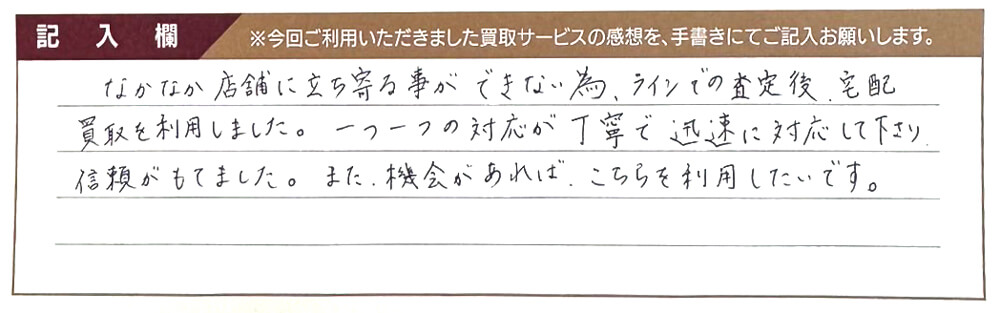 記入欄
※今回ご利用いただきました買取サービスの感想を、手書きにてご記入お願いします。
なかなか店舗に立ち寄る事ができない為、ラインでの査定後、宅配
買取を利用しました。一つ一つの対応が丁寧で迅速に対応して下さり、
信頼がもてました。また、機会があれば、こちらを利用したいです。